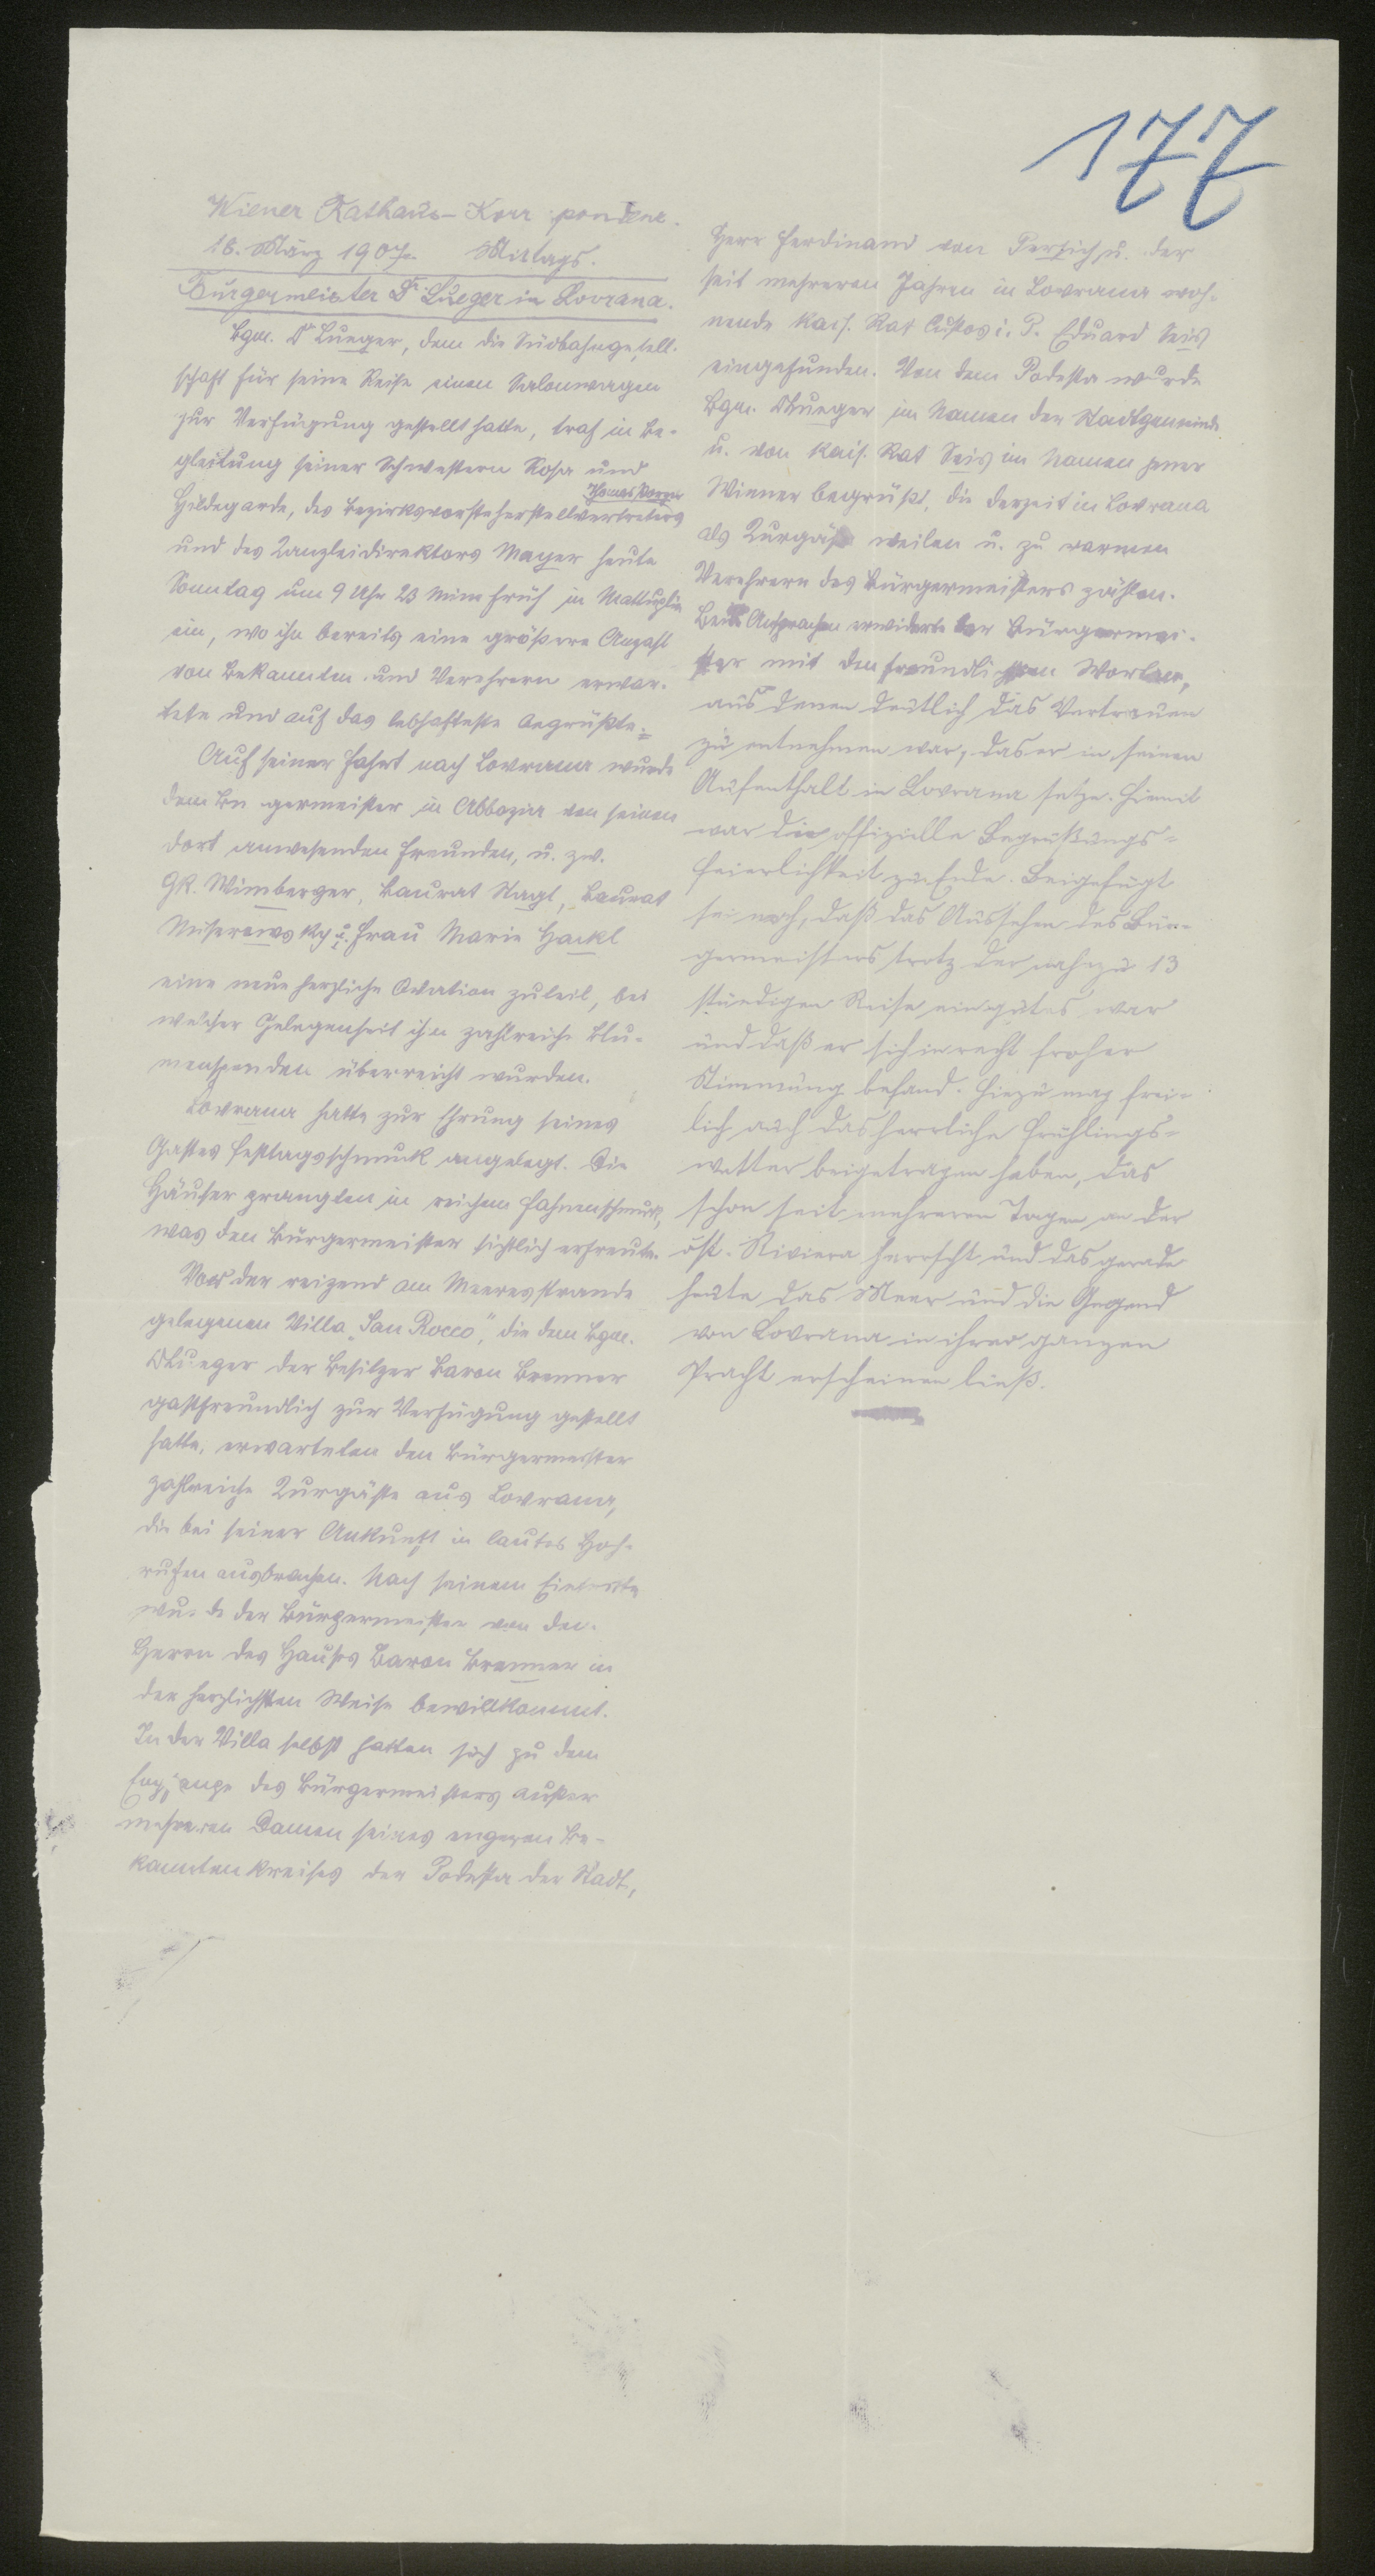 177
Wiener Rathaus-Korr pondenz.
18. März 1907. Mittags.
Bürgermeister Dr Lueger in Lovrana.
Bgm. Dr Lueger, dem die Südbahngesell-
schaft für seine Reise einen Salonwagen
zur Verfügung gestellt hatte, traf in Be-
gleitung seiner Schwestern Rosa und
Hildegarde, des Bezirksvorsteherstellvertreters
Thomas
und des Kanzleidirektors Mayer heute
Sonntag um 9 Uhr 23 Min früh in Mattuglie
ein, wo ihn bereits eine größere Anzahl
von Bekannten und Verehrern erwar-
tete und auf das lebhafteste begrüßte.
Auf seiner Fahrt nach Lovrana wurde
dem Bürgermeister in Abbazia von seinen
dort anwesenden Freunden, u. zw.
GR. Wimberger, Baurat Nagl, Baurat
u. Frau Marie Hackl
eine neue herzliche Ovation zuteil, bei
welcher Gelegenheit ihm zahlreiche Blu-
menspenden überreicht wurden.
Lovrana hatte zur Ehrung seines
Gastes Festtagsschmuck angelegt. Die
Häuser prangten in reichem Fahnenschmuck,
was den Bürgermeister sichtlich erfreute.
Vor der reizend am Meeresstrande
gelegenen Villa „San Rocco", die dem Bgm.
Dr Lueger der Besitzer Baron Brenner
gastfreundlich zur Verfügung gestellt
hatte, erwarteten den Bürgermeister
zahlreiche Kurgäste aus Lovrana,
die bei seiner Ankunft in lautes Hoch-
rufen ausbrachen. Nach seinem Eintritte
wurde der Bürgermeister von dem
Herrn des Hauses Baron Brenner in
der herzlichsten Weise bewillkommt.
In der Villa selbst hatten sich zu dem
Empfange des Bürgermeisters außer
mehreren Damen seines engeren Be-
kanntenkreises der Podesta der Stadt,
Herr Ferdinand von Persich, u. der
seit mehreren Jahren in Lovrana woh-
nende kais. Rat Custos i. P. Eduard Seis
eingefunden. Von dem Podesta wurde
Bgm. Dr Lueger im Namen der Stadtgemeinde
u. von kais. Rat Seis im Namen jener
Wiener begrüßt, die derzeit in Lovrana
als Kurgäste weilen u. zu warmen
Verehrern des Bürgermeisters zählen.
Beide Ansprachen erwiderte der Bürgermei-
ster mit den freundlichsten Worten,
aus denen deutlich das Vertrauen
zu entnehmen war, das er in seinen
Aufenthalt in Lovrana setze. Hiemit
war die offizielle Begrüßungs-
feierlichkeit zu Ende. Beigefügt
sei noch, daß das Aussehen des Bür-
germeisters trotz der nahezu 13
stündigen Reise ein gutes war
und daß er sich in recht froher
Stimmung befand. Hiezu mag frei-
lich auch das herrliche Frühlings-
wetter beigetragen haben, das
schon seit mehreren Tagen an der
öst. Riviera herrscht und das gerade
heute das Meer und die Gegend
von Lovrana in ihrer ganzen
Pracht erscheinen ließ.